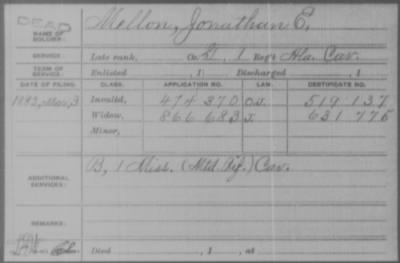 DEAD
NAME OF SOLDIER: Mellon, Jonathan E.
SERVICE: Late rank, Co. , 1 Reg't Ala. Cav.
TERM OF SERVICE: Enlisted , 1 Discharged , 1
DATE OF FILING. CLASS. APPLICATION NO. LAW. CERTIFICATE NO.
Invalid, 474 370 519 137
Widow, 866 683 631 775
Minor,
ADDITIONAL SERVICES: B, 1 Miss. (Mtd Rif.) Cav.
REMARKS:
Died , 1 , at